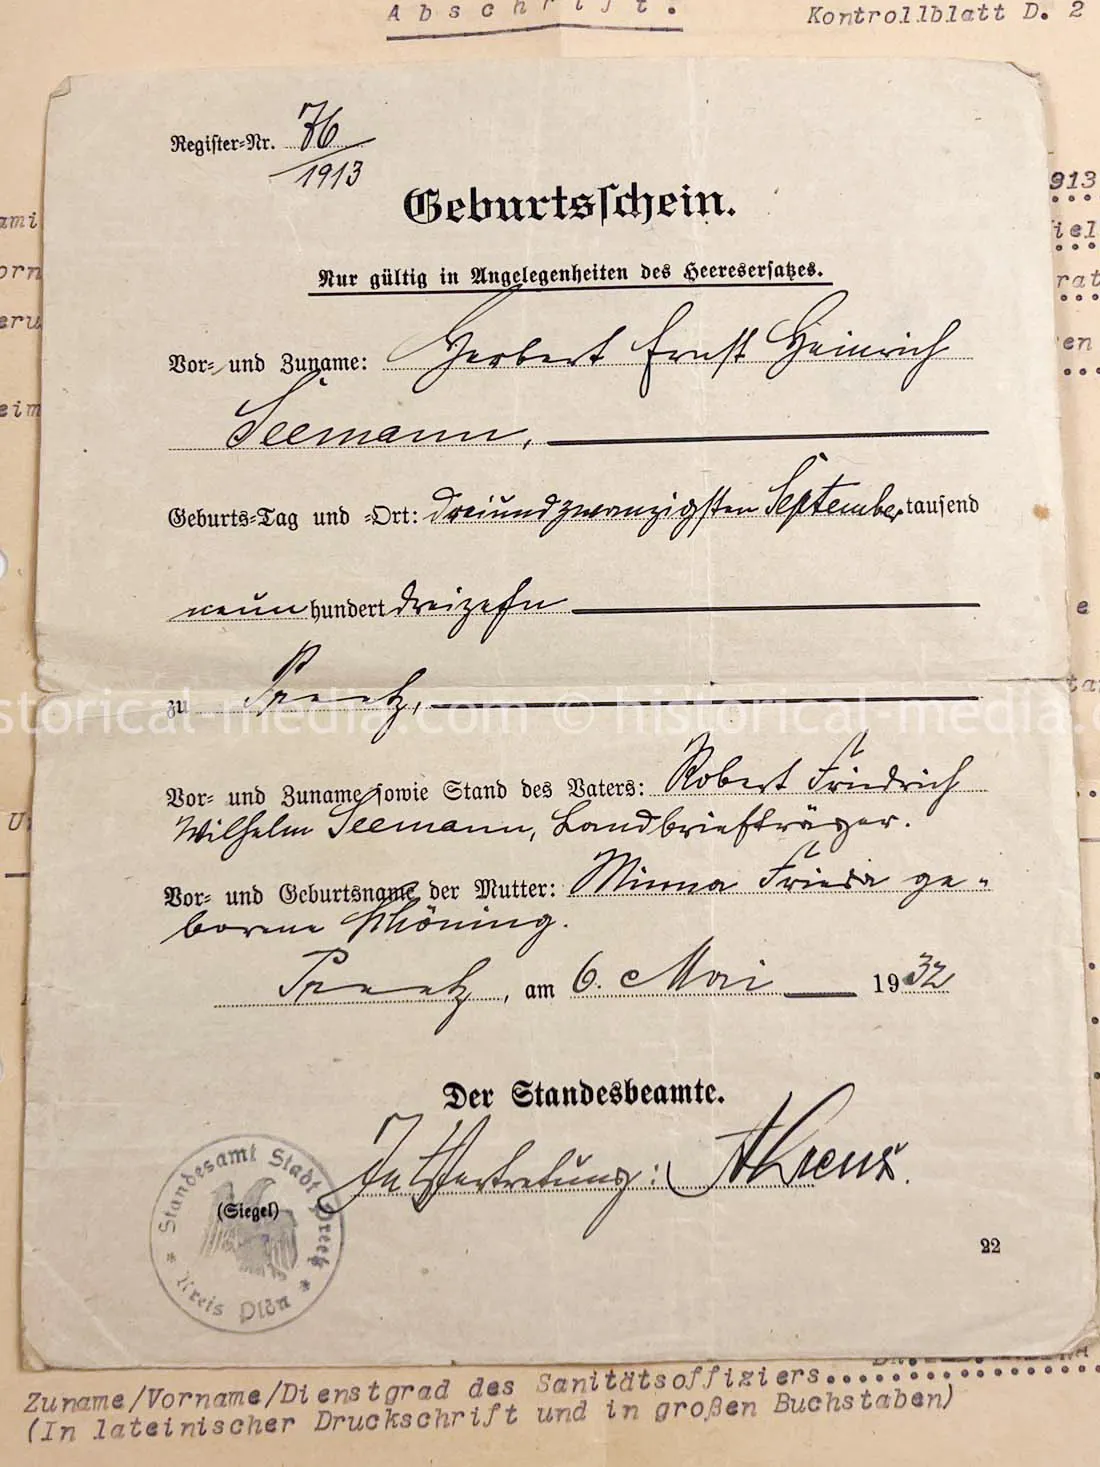 Abschrift.
Kontrollblatt D. 2
Register-Nr. 76/1913
Geburtsschein.
Nur gültig in Angelegenheiten des Heeresersatzes.
Vor- und Zuname: Herbert Ernst Heinrich
Seemann,
Geburts-Tag und -Ort: dreiundzwanzigsten September tausend
neun hundert dreizehn
zu Preetz,
historical-media.com © historical-media.c
Vor- und Zuname sowie Stand des Vaters: Robert Friedrich
Wilhelm Seemann, Landbriefträger.
Vor- und Geburtsname der Mutter: Minna Frieda ge-
borene Schöning.
Preetz, am 6. Mai 1932
Der Standesbeamte.
In Vertretung:
Standesamt Stadt Preetz
(Siegel)
* Kreis Plön *
22
Zuname/Vorname/Dienstgrad des Sanitätsoffiziers
(In lateinischer Druckschrift und in großen Buchstaben)